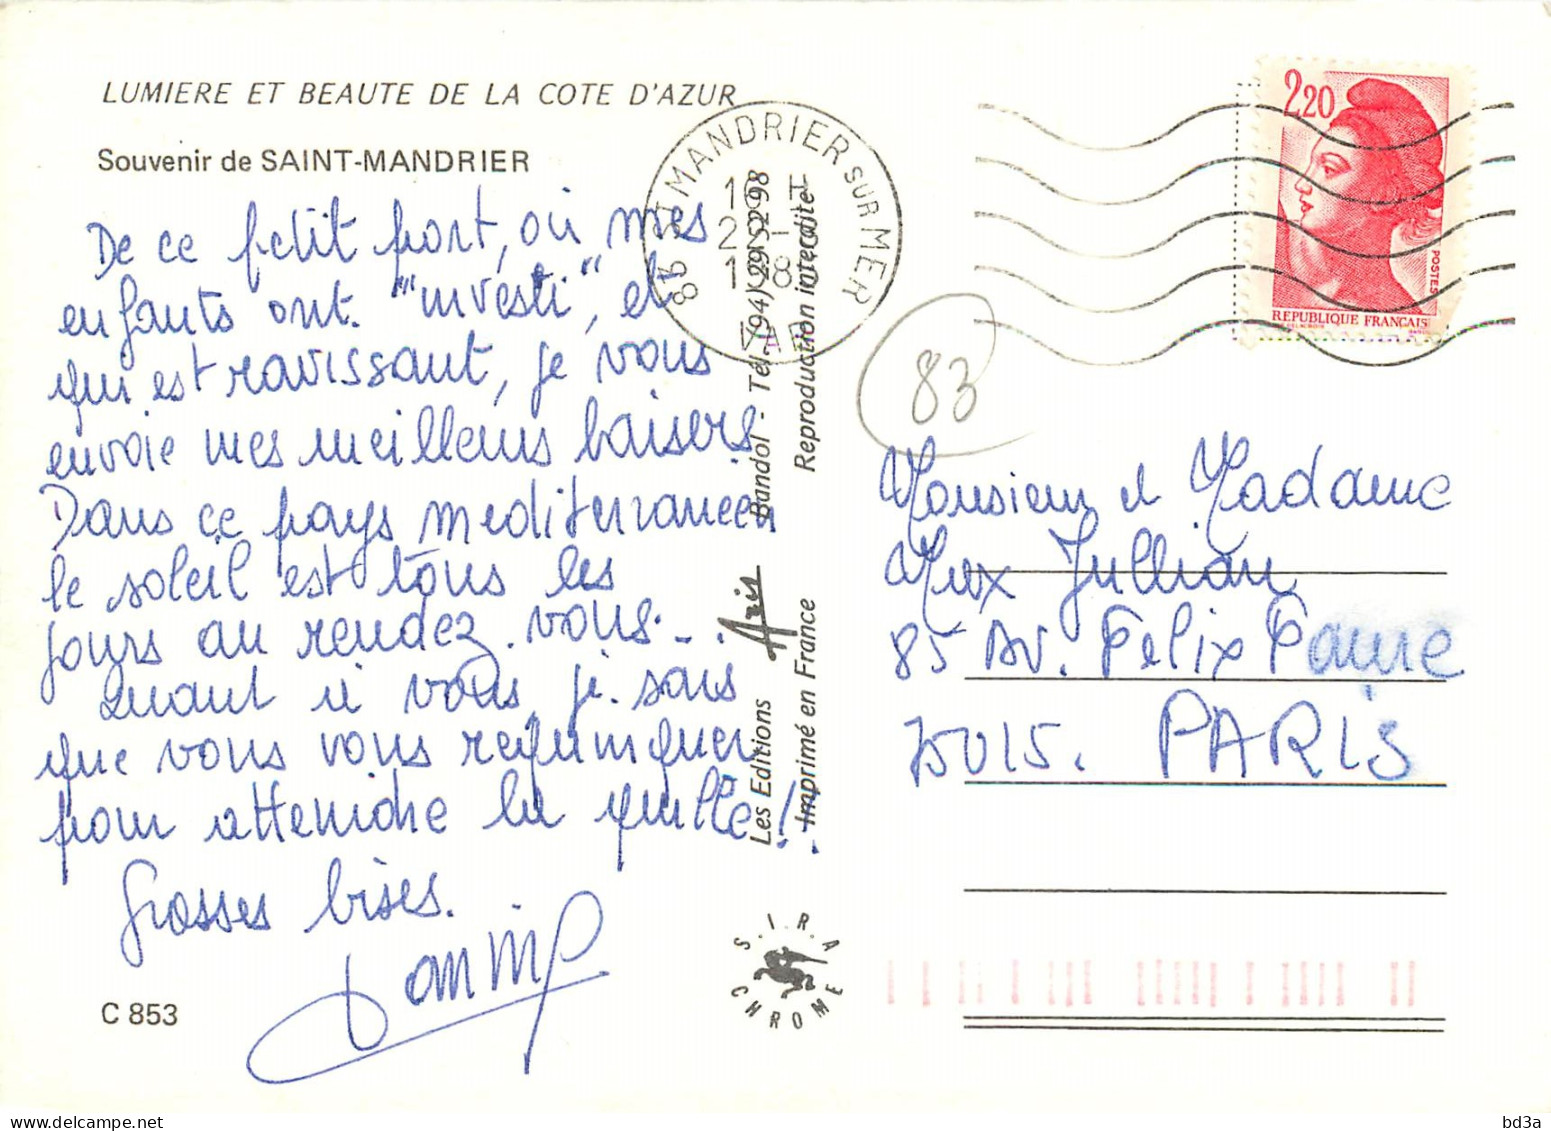 LUMIERE ET BEAUTE DE LA COTE D'AZUR
Souvenir de SAINT-MANDRIER
De ce petit port, où mes
enfants ont. "investi", et
qui est ravissant, je vous
envoie mes meilleurs baisers
Dans ce pays mediterraneen
le soleil est tous les
jours au rendez. vous. _ .
Quant à vous, je sais
que vous vous requinquer
pour atteindre la quille!!
Grosses bises.
C 853
83 ST MANDRIER SUR MER
VAR
Les Editions Aris Bandol - Tel. (94) 29 52 98
Imprimé en France Reproduction interdite
S.I.R.A
CHROME
2,20
POSTES
REPUBLIQUE FRANÇAISE
83
Monsieur et Madame
Mux Jullian
85 AV. Felix Faure
75015. PARIS
bd3a